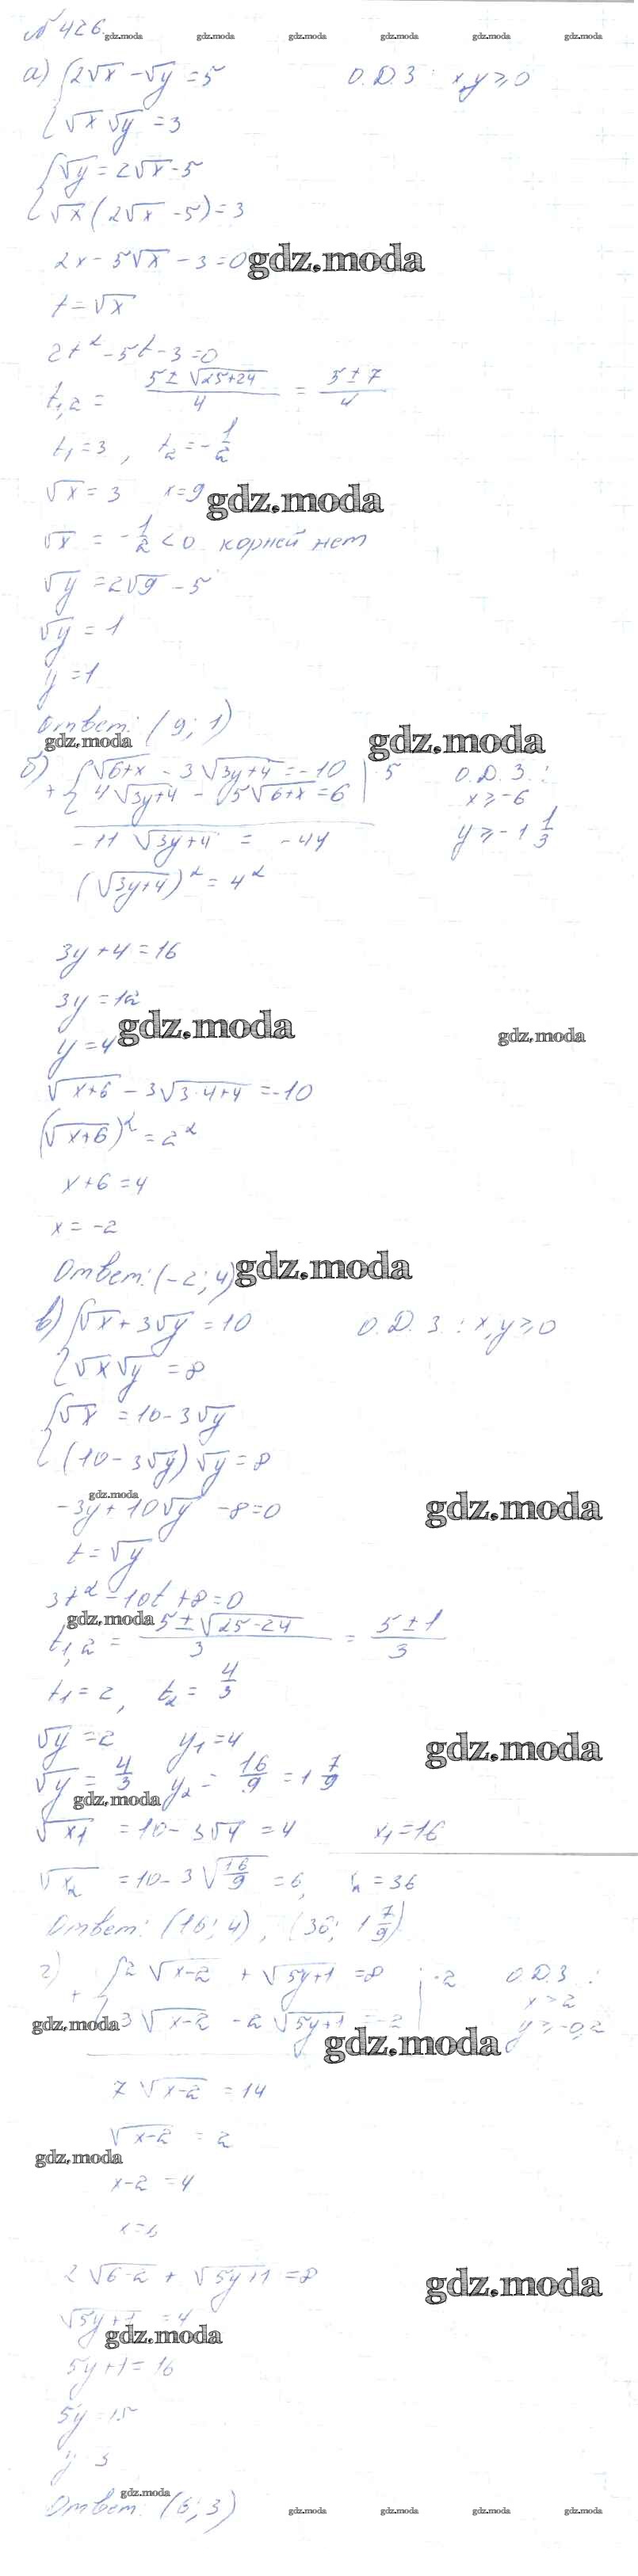 № 426.
gdz.moda gdz.moda gdz.moda gdz.moda gdz.moda gdz.moda
а) {2√x − √y = 5    О.Д.З : x,y ≥ 0
{√x √y = 3
{√y = 2√x − 5
{√x (2√x − 5) = 3
2x − 5√x − 3 = 0 gdz.moda
t = √x
2t² − 5t − 3 = 0
t₁,₂ = (5 ± √(25+24))/4 = (5 ± 7)/4
t₁ = 3, t₂ = −1/2
√x = 3    x = 9 gdz.moda
√x = −1/2 < 0 корней нет
√y = 2√9 − 5
√y = 1
y = 1
Ответ: (9; 1)
gdz.moda gdz.moda
б) {√(6+x) − 3√(3y+4) = −10 | ·5    О.Д.З. :
+ {4√(3y+4) − 5√(6+x) = 6 |    x ≥ −6
−11 √(3y+4) = −44    y ≥ −1 1/3
(√(3y+4))² = 4²
3y + 4 = 16
3y = 12
y = 4 gdz.moda gdz.moda
√(x+6) − 3√(3·4+4) = −10
(√(x+6))² = 2²
x + 6 = 4
x = −2
Ответ: (−2; 4) gdz.moda
в) {√x + 3√y = 10    О.Д.З. : x,y ≥ 0
{√x √y = 8
{√x = 10 − 3√y
{(10 − 3√y) √y = 8
gdz.moda gdz.moda
−3y + 10√y − 8 = 0
t = √y
3t² − 10t + 8 = 0
gdz.moda
t₁,₂ = (5 ± √(25−24))/3 = (5 ± 1)/3
t₁ = 2, t₂ = 4/3
√y = 2    y₁ = 4 gdz.moda
√y = 4/3    y₂ = 16/9 = 1 7/9
gdz.moda
√x₁ = 10 − 3√4 = 4    x₁ = 16
√x₂ = 10 − 3√(16/9) = 6,    x₂ = 36
Ответ: (16; 4), (36; 1 7/9)
г) {2 √(x−2) + √(5y+1) = 8 | ·2    О.Д.З :
+ {3 √(x−2) − 2 √(5y+1) = −2 |    x ≥ 2
gdz.moda gdz.moda    y ≥ −0,2
7 √(x−2) = 14
√(x−2) = 2
gdz.moda
x − 2 = 4
x = 6
2 √(6−2) + √(5y+1) = 8 gdz.moda
√(5y+1) = 4
gdz.moda
5y + 1 = 16
5y = 15
y = 3
gdz.moda
Ответ: (6; 3) gdz.moda gdz.moda gdz.moda gdz.moda